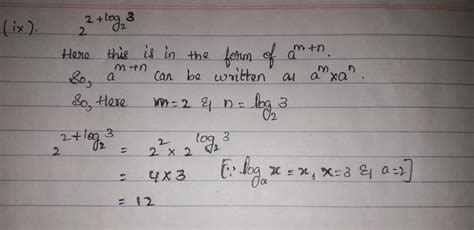 (ix). 2^{2+log_2 3}
Here this is in the form of a^{m+n}.
So, a^{m+n} can be written as a^m x a^n.
So, Here m=2 & n = log_2 3
2^{2+log_2 3} = 2^2 x 2^{log_2 3}
= 4 x 3 [∵ log_a x = x, x=3 & a=2]
= 12